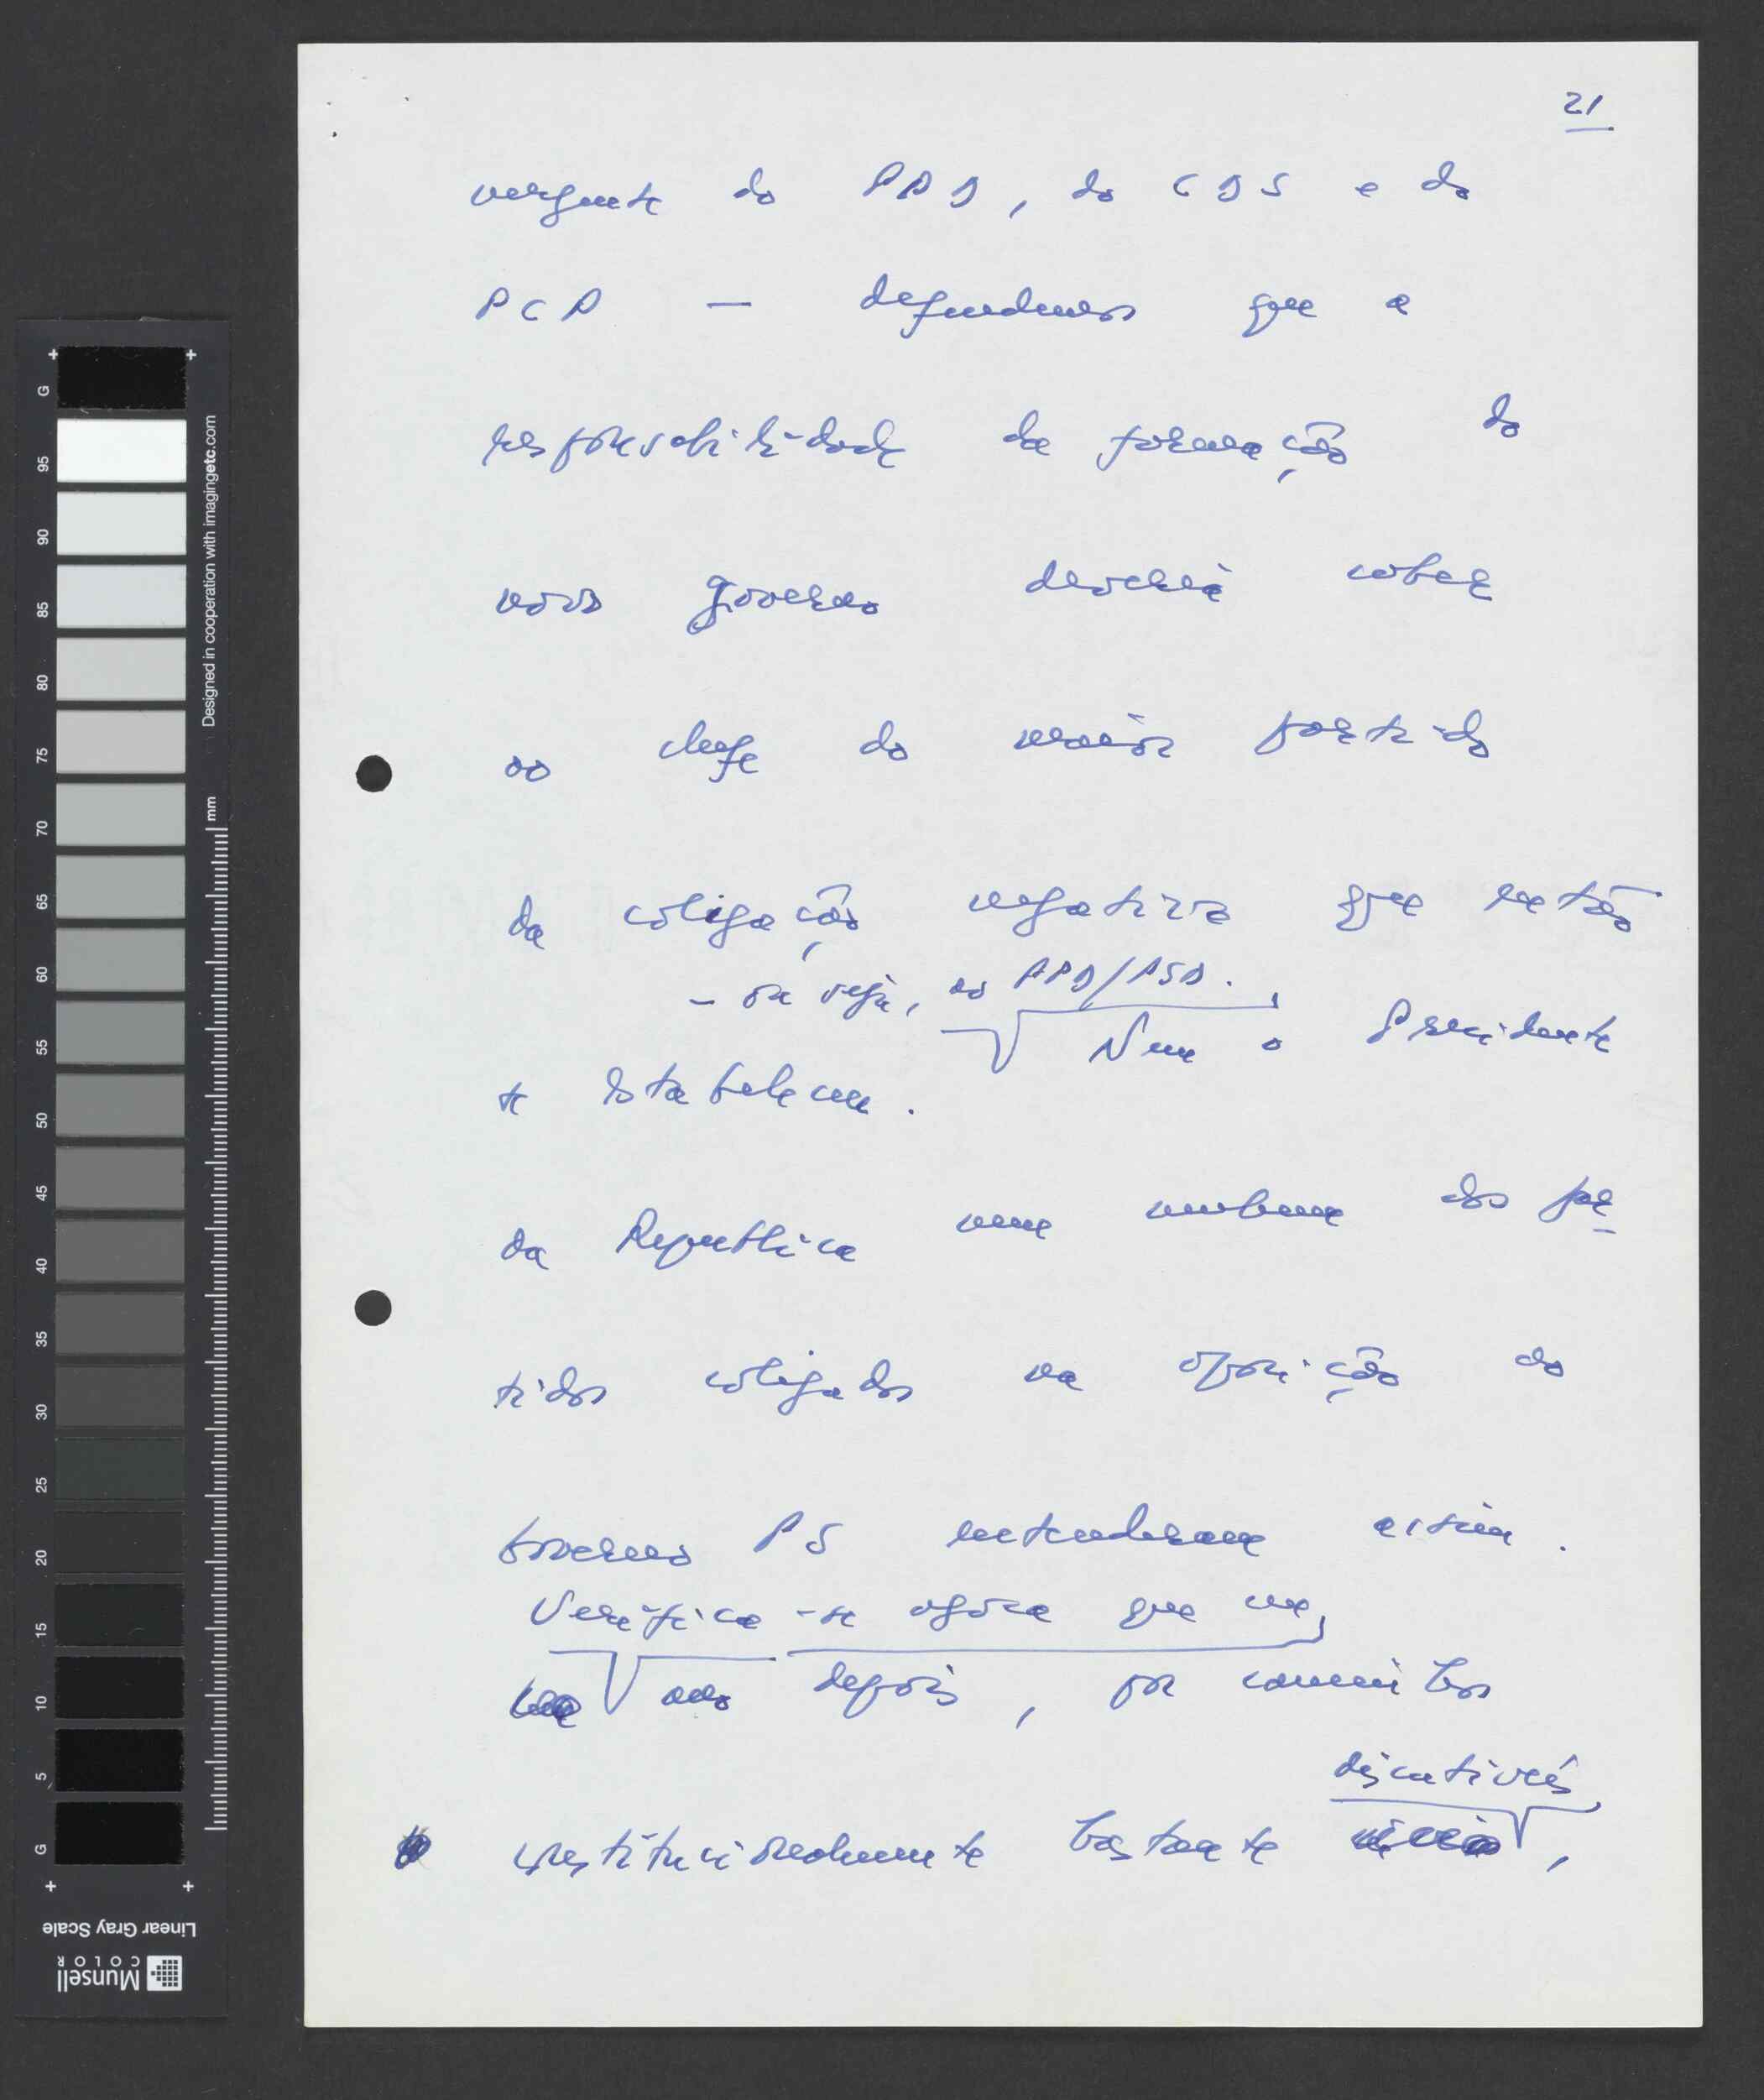 21
vergente do PPD, do CDS e do
PCP — defendemos que a
responsabilidade da formação do
novo governo deveria caber
ao chefe do maior partido
da coligação negativa que então
- ou seja, ao PPD/PSD.
se estabeleceu. Nem o Presidente
da Republica nem nenhum dos par
tidos coligados na oposição ao
Governo PS entenderam assim.
Verifica-se agora que um
ano depois, por caminhos
discutíveis
constitucionalmente bastante ,
G
95
90
85
80
75
70
65
60
55
50
45
40
35
30
25
20
15
10
5
G
Designed in cooperation with imagingetc.com
mm
Linear Gray Scale
Munsell
COLOR